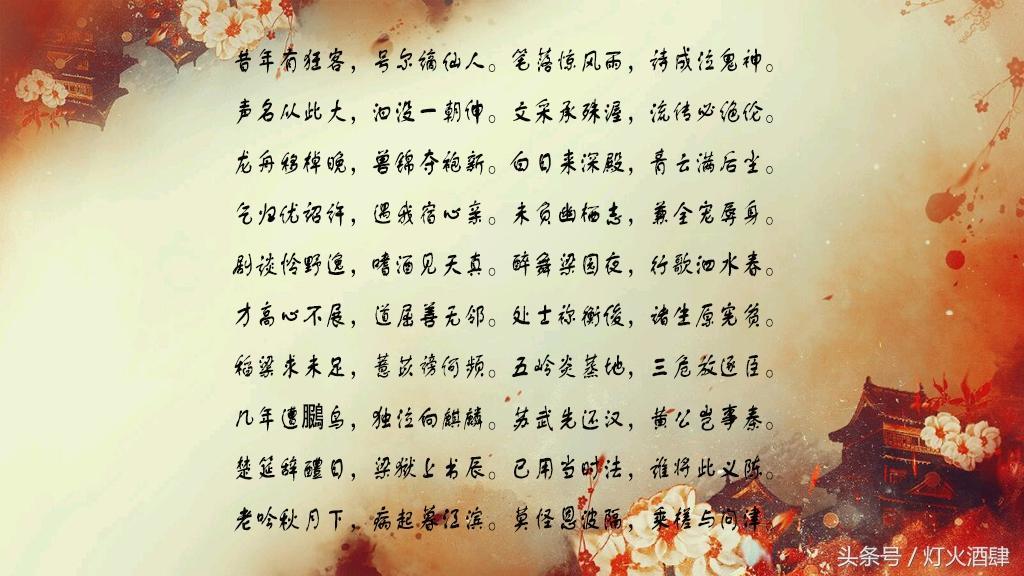 昔年有狂客，号尔谪仙人。笔落惊风雨，诗成泣鬼神。
声名从此大，汩没一朝伸。文采承殊渥，流传必绝伦。
龙舟移棹晚，兽锦夺袍新。白日来深殿，青云满后尘。
乞归优诏许，遇我宿心亲。未负幽栖志，兼全宠辱身。
剧谈怜野逸，嗜酒见天真。醉舞梁园夜，行歌泗水春。
才高心不展，道屈善无邻。处士祢衡俊，诸生原宪贫。
稻梁求未足，薏苡谤何频。五岭炎蒸地，三危放逐臣。
几年遭鵬鸟，独泣向麒麟。苏武先还汉，黄公岂事秦。
楚筵辞醴日，梁狱上书辰。已用当时法，谁将此义陈。
老吟秋月下，病起暮江滨。莫怪恩波隔，乘槎与问津。
头条号 / 灯火酒肆